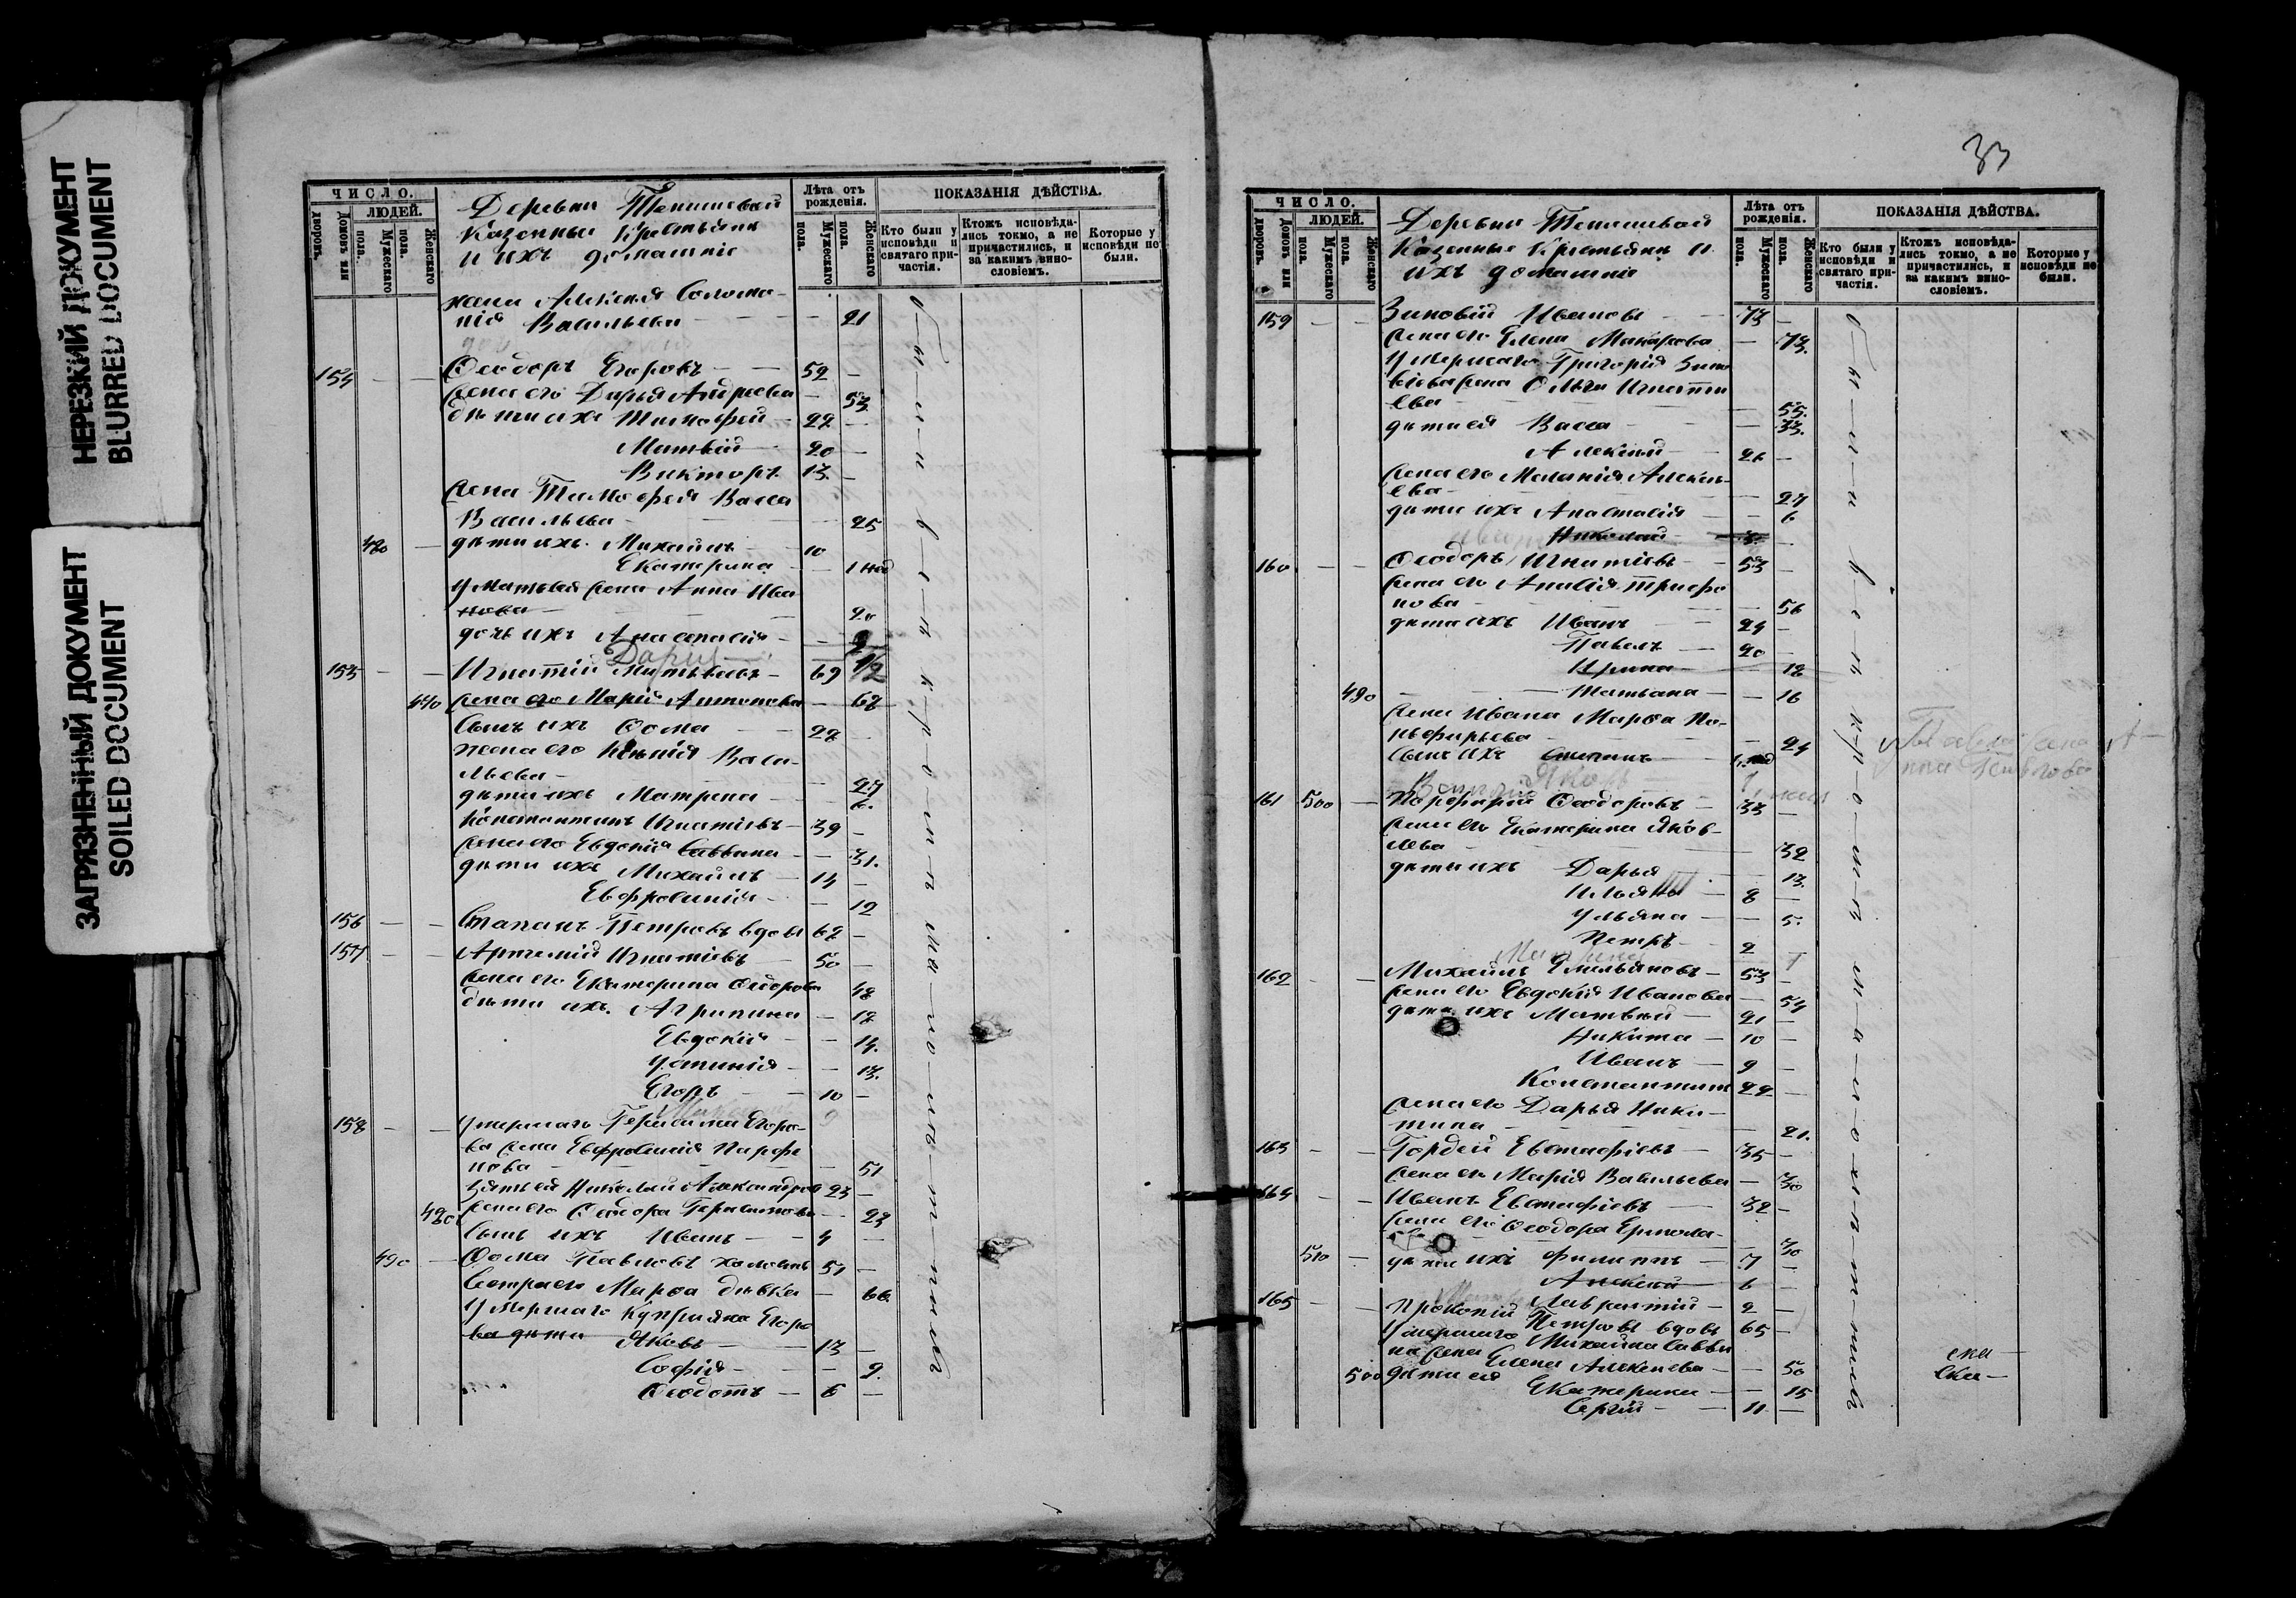 НЕРЕЗКИЙ ДОКУМЕНТ
BLURRED DOCUMENT
ЗАГРЯЗНЕННЫЙ ДОКУМЕНТ
SOILED DOCUMENT
ЧИСЛО.
ЛЮДЕЙ.
Домовъ или дворовъ.
Мужескаго пола.
Женскаго пола.
Деревни
Казенные Крестьяне
и ихъ домашніе
Лѣта отъ рожденія.
Мужескаго пола.
Женскаго пола.
ПОКАЗАНІЯ ДѢЙСТВА.
Кто были у исповѣди и святаго причастія.
Ктожъ исповѣдались токмо, а не причастились, и за какимъ винословіемъ.
Которые у исповѣди не были.
жена Алексея Соломо-
нія Васильева — 21
154 — — Ѳеодоръ Егоровъ — 52 —
жена его Дарья Андреева — 53
дѣти ихъ Тимофей — 22 —
Матвій — 20 —
Викторъ 13 —
жена Тимофея Васса
Васильева — 25
480 — дѣти ихъ Михаилъ — 10
Екатерина — 1 нед
у Матвея жена Анна Ива
нова — 20
дочь ихъ Анастасія — 2
Дарія 1/2
155 — — Игнатій Матвѣевъ — 69
470 жена его Марія Антонова — 62
сынъ ихъ Ѳома — 22 —
жена его Васи-
льева — 27
дѣти ихъ Матрена — 6.
Константинъ Игнатіевъ — 39 —
жена его Евдокія Саввина — 31.
дѣти ихъ Михаилъ — 14 —
Евфросинія — 12
156 — — Степанъ Петровъ вдовъ 62 —
157 — — Артемій Игнатіевъ 50 —
жена его Екатерина Ѳедорова 48
дѣти ихъ Агрипина — 12
Евдокія — 14.
Устинія — 13.
Егоръ — 10 —
158 — — умершаго Герасима Егоро-
ва жена Евфросинія Парфе
нова — 51
зять ей Николай Александров 23 —
480 жена его Ѳеодора Герасимова — 23
сынъ ихъ Иванъ — 4 —
490 — Ѳома Павловъ холостъ 51 —
сестра его Марѳа дѣвка — 66.
умершаго Купріяна Егоро
ва дѣти Яковъ — 13 —
Софія — 9.
Ѳеодотъ — 6 —
33
ЧИСЛО.
ЛЮДЕЙ.
Домовъ или дворовъ.
Мужескаго пола.
Женскаго пола.
Деревни
Казенные Крестьяне и
ихъ домашніе
Лѣта отъ рожденія.
Мужескаго пола.
Женскаго пола.
ПОКАЗАНІЯ ДѢЙСТВА.
Кто были у исповѣди и святаго причастія.
Ктожъ исповѣдались токмо, а не причастились, и за какимъ винословіемъ.
Которые у исповѣди не были.
159 — — Зиновій Ивановъ 73 —
жена его Елена Макарова — 73.
умершаго Григорія Зино
віева жена Ольга Игнатьи
ева — 55.
дѣти ей Васса — 33.
Алексей — 26 —
жена его Меланія Алексѣ-
ева — 27
дѣти ихъ Анастасія — 6
Николай — 3 —
160 — — Ѳеодоръ Игнатіевъ — 53 —
жена его Анисія Трифо
нова — 56
дѣти ихъ Иванъ 24 —
Павелъ — 20 —
Ирина — 18
490 Татьяна — 16
жена Ивана Марѳа По-
рфирьева — 24
сынъ ихъ Степанъ
Яковъ
161 500 — Порфирій Ѳеодоровъ — 33 —
жена его Екатерина Яков-
лева — 32
дѣти ихъ Дарья — 13.
Илья 8 —
Ульяна — 5.
Петръ — 2
162 — — Михаилъ Емельяновъ — 53 —
жена его Евдокія Иванова — 54
дѣти ихъ Матвей — 21 —
Никита — 10 —
Иванъ — 9 —
Константинъ 22 —
жена его Дарья Ники-
тина — 21.
163 — — Гордей Евстафіевъ — 35 —
жена его Марія Васильева — 30
164 — — Иванъ Евстафіевъ — 32 —
жена его Ѳеодора Ермола-
30
510 — дѣти ихъ Филиппъ — 7 —
Алексей — 6 —
Лаврентій — 2 —
165 — — Прокопій Петровъ вдовъ 65 —
умершаго Михаила Савви
на жена Елена Алексеева — 50
500 дѣти ей Екатерина — 15
Сергій — 11 —